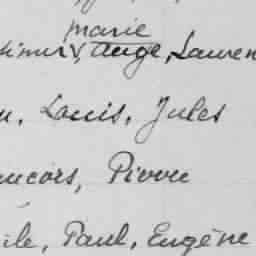 Marie
Ange, Lauren
Louis, Jules
Pierre
ile, Paul, Eugène